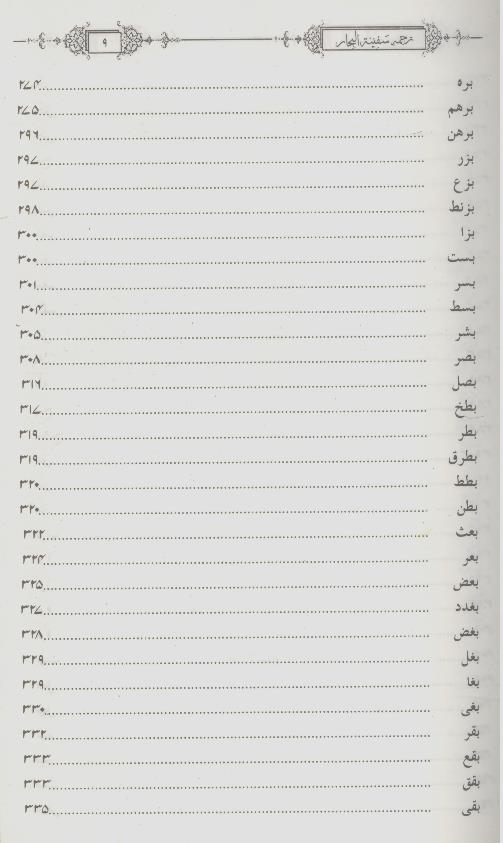 ترجمه سَفينَة البِحار ۹
بره ........ ۲۷۴
برهم ........ ۲۷۵
برهن ........ ۲۹۶
بزر ........ ۲۹۷
بزع ........ ۲۹۷
بزنط ........ ۲۹۸
بزا ........ ۳۰۰
بست ........ ۳۰۰
بسر ........ ۳۰۱
بسط ........ ۳۰۴
بشر ........ ۳۰۵
بصر ........ ۳۰۸
بصل ........ ۳۱۶
بطخ ........ ۳۱۷
بطر ........ ۳۱۹
بطرق ........ ۳۱۹
بطط ........ ۳۲۰
بطن ........ ۳۲۰
بعث ........ ۳۲۲
بعر ........ ۳۲۴
بعض ........ ۳۲۵
بغدد ........ ۳۲۷
بغض ........ ۳۲۸
بغل ........ ۳۲۹
بغا ........ ۳۲۹
بغی ........ ۳۳۰
بقر ........ ۳۳۲
بقع ........ ۳۳۳
بقق ........ ۳۳۳
بقی ........ ۳۳۵